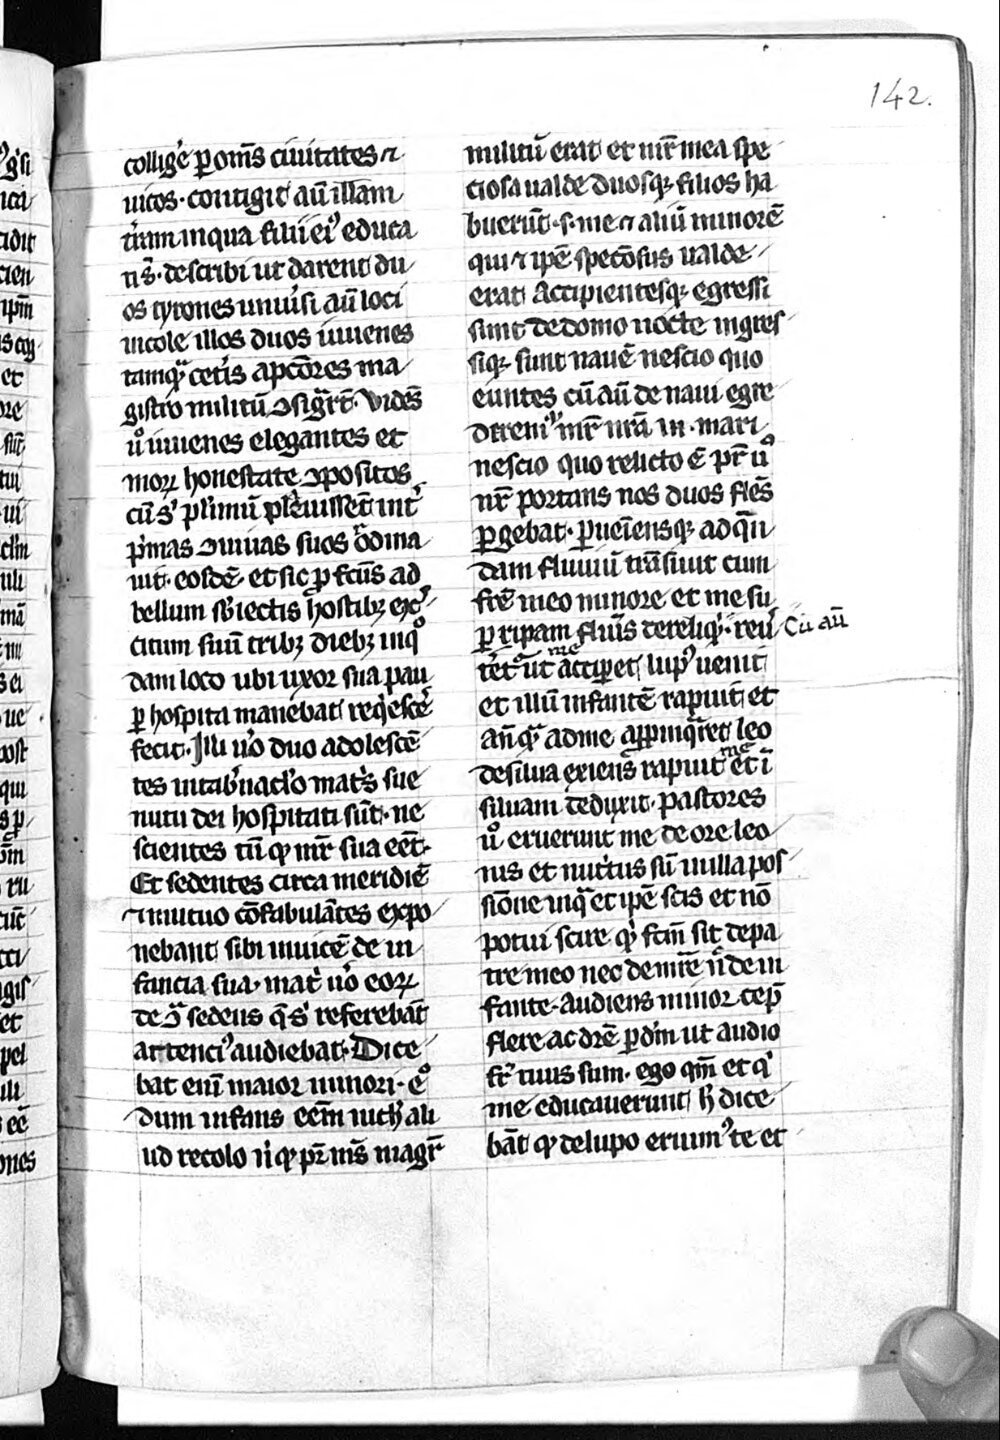 142.
collig̅e ꝑ om̅s ciuitates ⁊
uicos · contigit au̅ illam
t̓ram in qua filii ei᷒ educa
ti s̅t · describi ut darent du
os tyrones uniu̓si au̅ loci
incole illos duos iuuenes
tamqᷓ cet̓is aptiores ma
gistro militu̅ ꝯsigᷓr̅t · Vide̅s
u̓o iuuenes elegantes et
moꝝ honestate ꝯpositos
bellum sb̓iectis hostibꝫ exer
citum suu̅ tribꝫ diebꝫ in qᵒ
dam loco ubi uxor sua pau
ꝑ hospita manebat req̓esce̓
fecit · Illi u̓o duo adolesce̅
tes in tab̓nac̓lo mat̓s sue
nutu dei hospitati su̅t · ne
scientes tn̅ ꝙ mr̅ sua eet̅ ·
Et sedentes circa meridie̅
⁊ mutuo co̅fabula̅tes expo
nebant sibi inuice̅ de in
fancia sua · mat̓ u̓o eoꝝ
de ꝯᷓ sedens q̅ s᷒ refereba̅t
attenci᷒ audiebat · Dice
bat eni̅ maior minori · eᵒ
dum infans eem̅ nich̓ ali
ud recolo n̓ ꝙ pr̅ m̅s magr̅
militu̅ erat et mr̅ mea spe
ciosa ualde duosqꝫ filios ha
bueru̅t · s · me ⁊ aliu̅ minore̅
qui ⁊ ipe̅ specio̅sus ualde
erat Accipientesqꝫ egressi
sunt de domo nocte ingres
siqꝫ sunt naue̅ nescio quo
euntes cu̅ au̅ de naui egre
derem᷒ mr̅ nr̅a̅ in · mari
nescio quo relicto e̅ pr̅ u̓o
nr̅ portans nos duos fle̅s
ꝑgebat · ꝑueie̅nsqꝫ ad q̅n
dam fluuiu̅ tra̅siuit cum
fr̅e meo minore et me su
ꝑ ripam flui̅s dereliq̓ · reu̓ Cu̅ au̅
t̓et᷒ ut me acciꝑet lup᷒ uenit
et illu̅ infante̅ rapuit et
an̅qᷓ ad me appinqᷓret leo
de silua exiens rapuit me et i̅
siluam deduxit · pastores
u̓o eruerunt me de ore leo
nis et nut̓tus su̅ in illa pos
sio̅ne in qᷓ et ipe̅ scis et no̅
potui scire qᷓ fc̅m sit de pa
tre meo nec de mr̅e n̓ de in
fante · Audiens minor cep̅
flere ac dr̅e ꝑ dm̅ ut audio
fr̅ tuus sum · ego qm̅ et q̓
me educauerunt h̓ dice
ba̅t ꝙ de lupo eruim᷒ te et